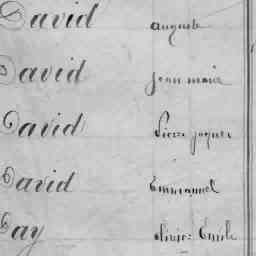 David auguste
David jean marie
David Pierre jacques
David Emmanuel
Day olivier Emile